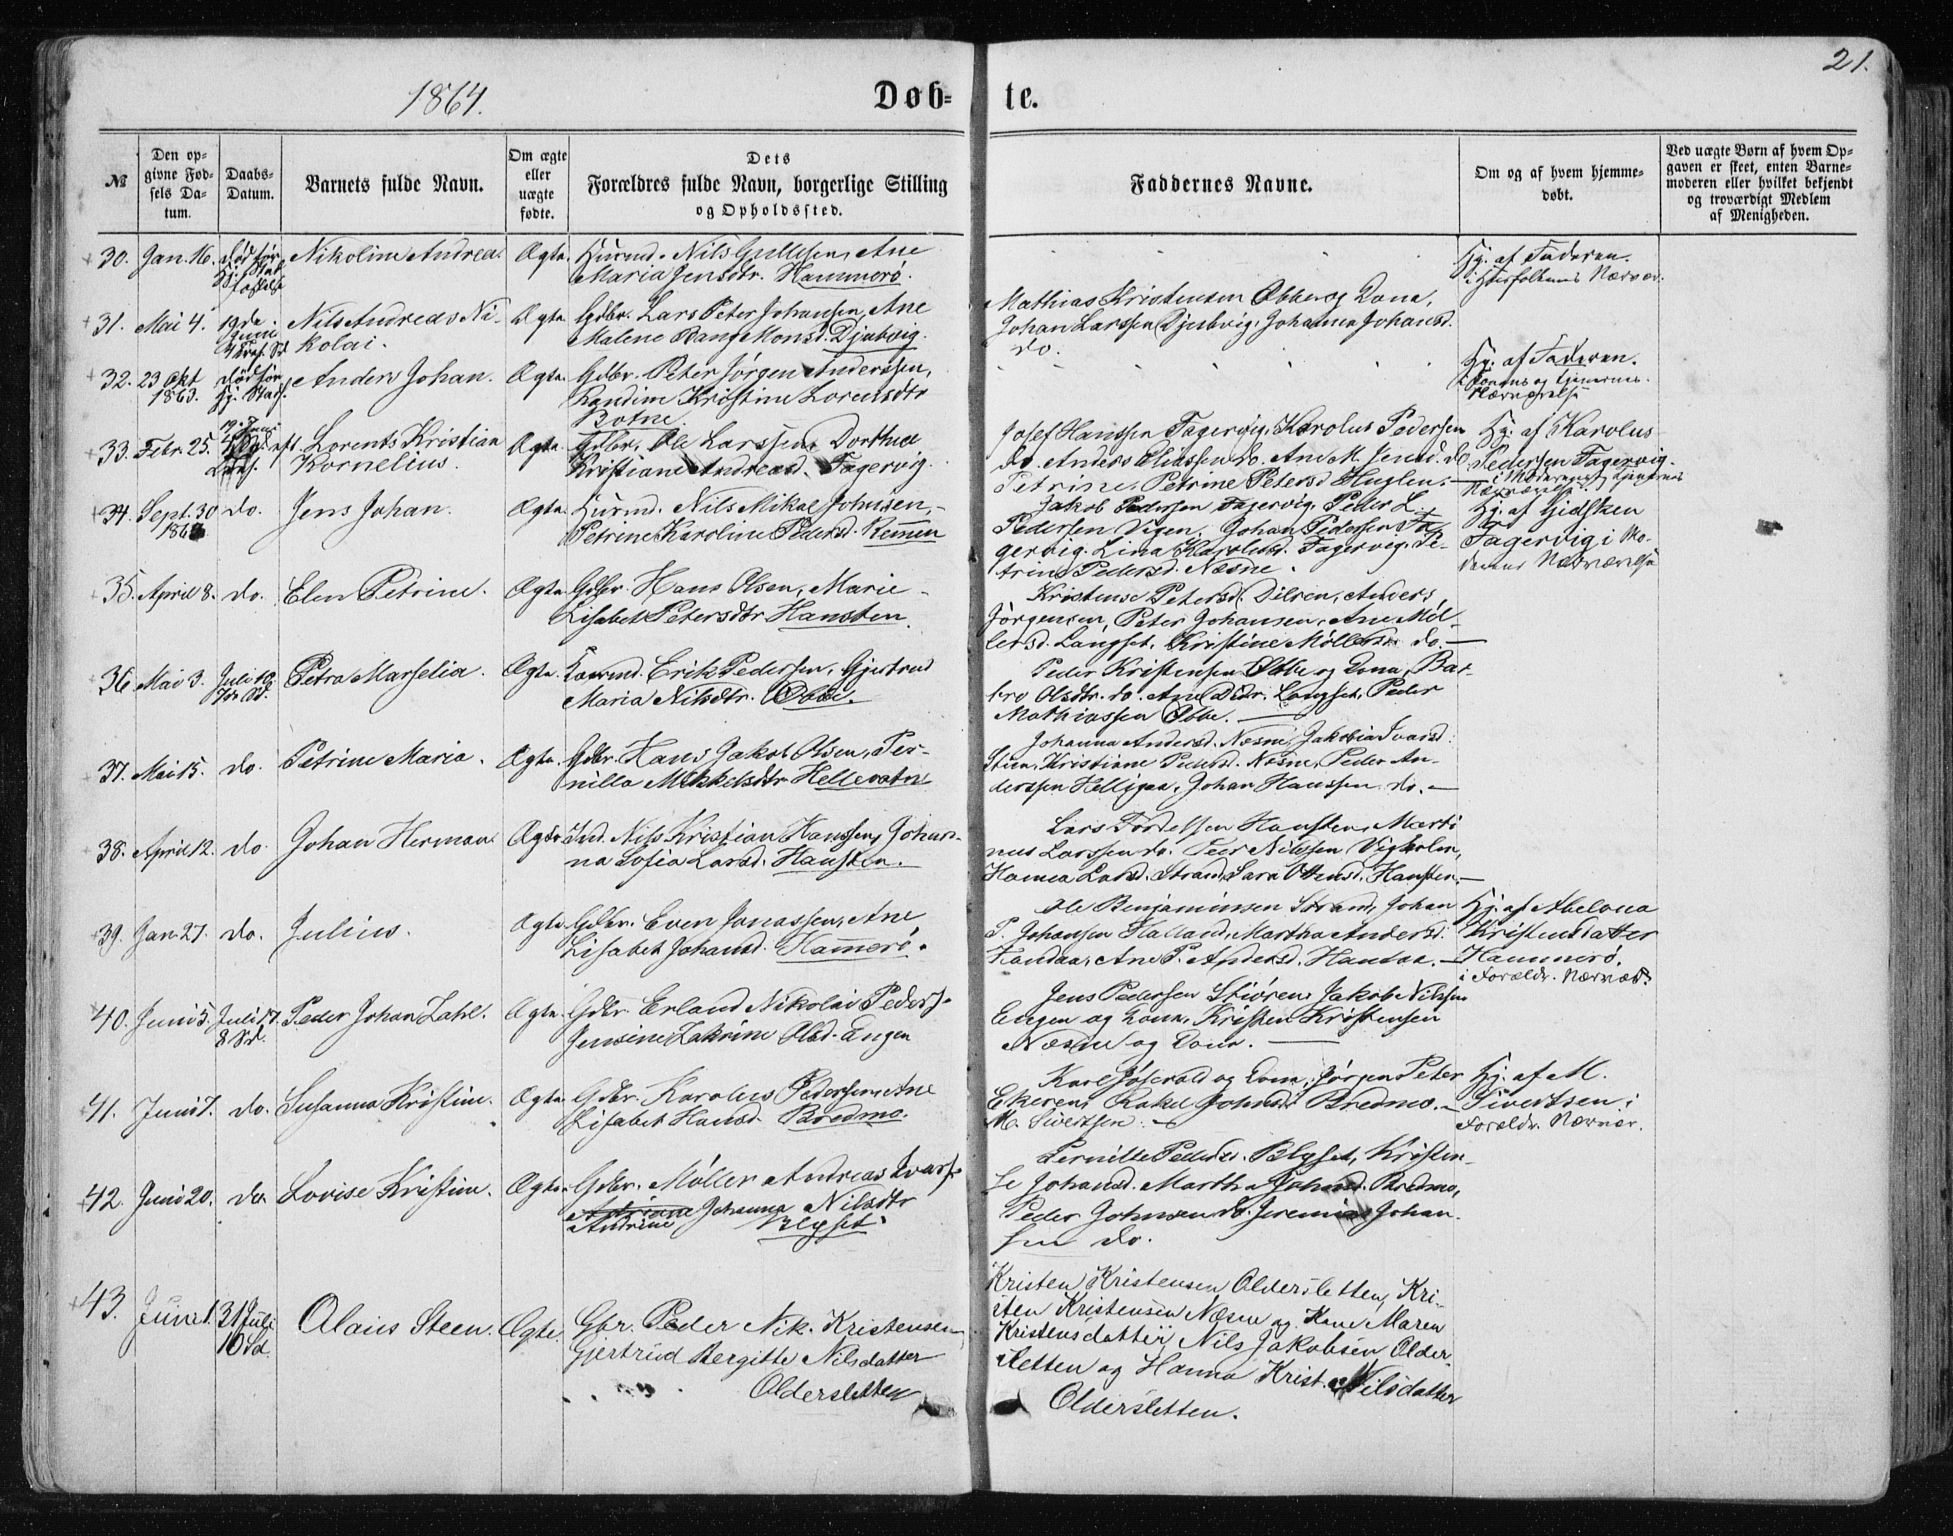 21.
1864.
Døb-
te.
№
Den opgivne Fødsels Datum.
Daabs-Datum.
Barnets fulde Navn.
Om ægte eller uægte fødte.
Dets Forældres fulde Navn, borgerlige Stilling og Opholdssted.
Faddernes Navne.
Om og af hvem hjemmedøbt.
Ved uægte Børn af hvem Opgaven er skeet, enten Barnemoderen eller hvilket bekjendt og troværdigt Medlem af Menigheden.
30. Jan. 16. død før Nikoline Andrea. Ægte. Huusmd. Nils Ane
Maria Jensdtr. Hammerø.
Hj. af Faderen.
i Nærvær.
31. Mai 4. 19de Juni Nils Andreas Nikolai. Ægte Gdbr. Lars Peter Johansen, Ane
Malene Bang Monsd. Djubvig.
Mathias Kristensen Øbbe og Kona,
Johan Larssen Djubvig, Johanna Johansd.
do.
32. 23 Okt 1863. død før Anders Johan. Ægte. Gdbr. Peter Jørgen Anderssen,
Randine Kristine Lorentsdtr
Botne
Hj. af Faderen.
Nærværelse
33. Febr. 25. 19 Juni Lorents Kristian Kornelius. Ægte. Gdbr. Ole Larssen, Dorthea
Kristiane Andreasd. Fagervig.
Josef Hanssen Fagervig, Karolus Pedersen
do. Anders Eliassen do. Ane M. Jensd. do
Petrine, Petrine Petersd Huglen.
Hj. af Karolus
Pedersen Fagervig.
i Moderens Nærværelse.
34. Sept. 30 do. Jens Johan. Ægte. Huusmd. Nils Mikal Johnsen,
Petrine Karoline Pedersd. Remmen
Jakob Pedersen Fagervig, Peder L.
Pedersen Vegen, Johan Pedersen Fagervig. Lina Karolusd. Fagervig, Petrine Pedersd. Næsne.
Hj. af Gidsken
Fagervig i Moderens Nærværelse
35. April 8. do. Elen Petrine. Ægte Gdbr Hans Olsen, Marie
Lisabet Petersdtr Hansten.
Kristense Petersd. Dilsen, Anders
Jørgensen, Peter Johansen, Ane Møllersd. Langset, Kristine Møllersd. do.
36 Mai 3. Juli 10 Petra Marselia. Ægte. Erik Pedersen, Gjertrud
Maria Nilsdtr. Øbbe.
Peder Kristensen Øbbe og Kona, Barbro Olsdtr. do. Ane Didr. Langset, Peder
Mathiassen Øbbe.
37. Mai 15. do. Petrine Maria. Ægte. Gdbr. Hans Jakob Olsen, Pernilla Mikkelsdtr Hellevatn
Johanna Andersd. Næsne, Jakobia Ivarsd.
Stien, Kristiane Pedersd. Næsne, Peder Anderssen Helligaa, Johan Hanssen do.
38. April 12. do. Johan Herman. Ægte Nils Kristian Hanssen, Johanna Sofia Larsd. Hansten.
Lars Hansten, Martinus Larssen do. Peder Nilssen Vigholm,
Hanna Larsd. Strand, Sara Ottensd. Hansten.
39. Jan. 27. do. Julius. Ægte Gdbr. Even Jonassen, Ane
Lisabet Johansd. Hammerø.
Ole Benjaminsen Strand, Johan
P. Johansen Halland, Martha Andersd.
Handaa, Ane P. Andersd. Handaa.
Hj. af Abelona
Kristensdatter
Hammerø.
i Foreldr. Nærvær.
40. Juni 5. Juli 17. 8 Sd. Peder Johan Zahl. Ægte Gdbr Erland Nikolai Peders.
Jensine Zakrine Olsd. Engen
Jens Pedersen Stiøren, Jakob Nilssen
Engen og Kona, Kristen Kristensen
Næsne og Kona.
41. Juni 7. do. Susanna Kristine. Ægte. Gdbr. Karolus Pedersen, Ane
Lisabet Hansd. Bredmo.
Karl Jøsevold og Kona, Jørgen Peter
Ekeren, Rakel Johnsd. Bredmo.
M. Sivertsen.
Hj. af M.
Sivertsen i
Foreldr. Nærvær.
42. Juni 20. do. Lovise Kristine. Ægte. Gdbr. Møller Andreas Ivars.
Andrine Johanna Nilsdtr
Blyset.
Pernille Pedersd. Blyset, Kristense Johansd. Martha Johnsd. Bredmo,
Peder Johnsen do. Jeremias Johansen do.
43. Juni 1. 31 Juli 10 Sd. Olaus Steen. Ægte. Gbr. Peder Nik. Kristensen
Gjertrud Bergitte Nilsdatter
Oldersletten
Kristen Kristensen Oldersletten, Kristen Kristensen Næsne og Kone Maren
Kristensdatter, Nils Jakobsen Oldersletten og Hanna Krist. Nilsdatter
Oldersletten.